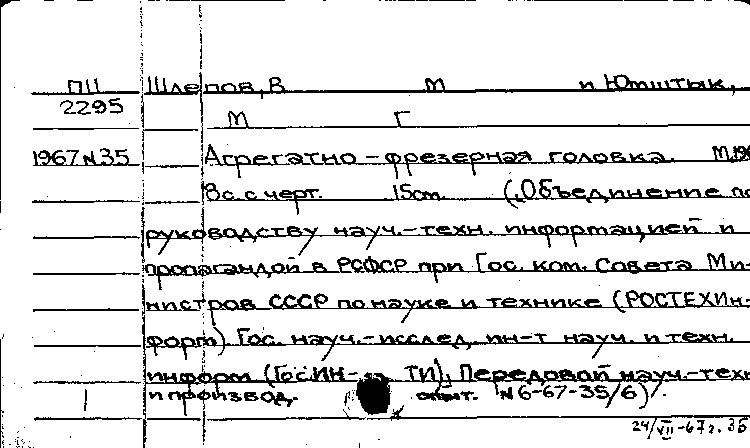 ПЦ Шлепов, В М и Ютштык,
2295
М Г
1967 N 35 Агрегатно-фрезерная головка. М, 196
8 с. с черт. 15 см. (Объединение по
руководству науч.-техн. информацией и
пропагандой в РСФСР при Гос. ком. Совета Ми-
нистров СССР по науке и технике (РОСТЕХИн-
форм). Гос. науч.-исслед. ин-т науч. и техн.
информ (ГосИН- ТИ), Передовой науч.-техн
и производ. опыт. N 6-67-35/6).
24/VII-67 г. 35